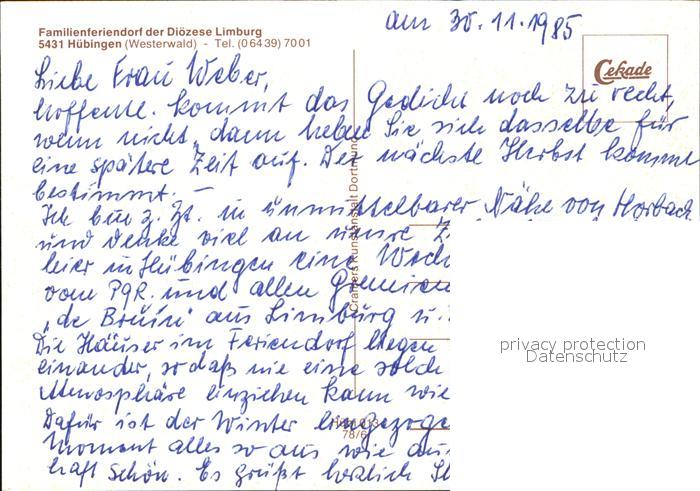 am 30.11.1985
Familienferiendorf der Diözese Limburg
5431 Hübingen (Westerwald) - Tel. (0 64 39) 70 01
Cekade
Liebe Frau Weber,
hoffentl. kommt das Gedicht noch zu recht,
wenn nicht, dann heben Sie sich dasselbe für
eine spätere Zeit auf. Der nächste Herbst kommt
bestimmt. –
Ich bin z. Zt. in unmittelbarer Nähe von Horbach
und denke viel an unsre Z
hier in Hübingen eine Woch
vom PGR. und allen Gremien
"de Bruin" aus Limburg u.
Die Häuser im Feriendorf liegen
einander, so daß nie eine solch
Atmosphäre einziehen kann wie
Dafür ist der Winter eingezoge
Moment alles so aus wie
haft schön. Es grüßt herzlich
Cramers Kunstanstalt Dortmund
78/6
privacy protection
Datenschutz